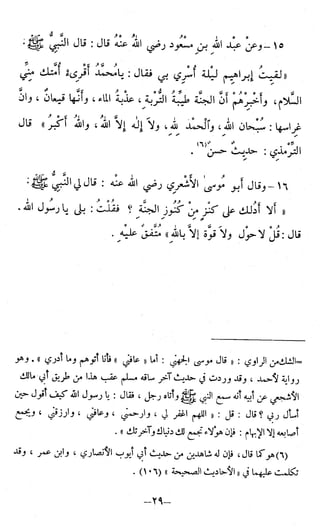 ١٥ - وعنْ عبْد اللهِ بنِ مسْعود رضي اللهُ عنْهُ قال : قال النَّبيُّ ﷺ :
« لقيتُ إبراهيم ليْلة أُسْري بي فقال : يامُحمَّد أقْرىءْ أُمتك منِّي
السَّلام ، وأخبِرْهُمْ أنَّ الجنَّة طيِّبةُ التُّرْبة ، عذْبةُ الماء ، وأنَّها قيعانٌ ، وانَّ
غراسها : سُبْحان اللهِ ، والْحمْد للهِ ، ولا إله إلاَّ اللهُ ، واللهُ أكبرُ » قال
التِّرمذي : حديثٌ حسنٌ (٦) .
١٦ - وقال أبو مُوسى الأشْعري رضي الله عنه : قال لي النَّبيُّ ﷺ :
« ألا أدُلك على كنزٍ منْ كنُوز الجنَّة ؟ فقلْتُ : بلى يا رسُول الله .
قال : قُلْ لا حوْل ولا قوَّة إلاَّ باللهِ » مُتَّفقٌ عليْهِ .
=الشك من الراوي : « قال موسى الجهني : أما « عافني » فأنا أتوهم وما أدري » . وهو
رواية لأحمد ، وقد وردت في حديث آخر ساقه مسلم عقب هذا من طريق أبي مالك
الأشجعي عن أبيه أنه سمع النبي ﷺ وأتاه رجل ، فقال : يا رسول الله كيف أقول حين
أسأل ربي ؟ قال : قل : « اللهم اغفر لي ، وارحمني ، وعافني ، وارزقني ، ويجمع
أصابعه إلا الإبهام : فإن هؤلاء تجمع لك دنياك وآخرتك » .
(٦) هو كما قال ، فإن له شاهدين من حديث أبي أيوب الأنصاري ، وابن عمر ، وقد
تكلمت عليهما في « الأحاديث الصحيحة » (١٠٦) .
-٢٩-